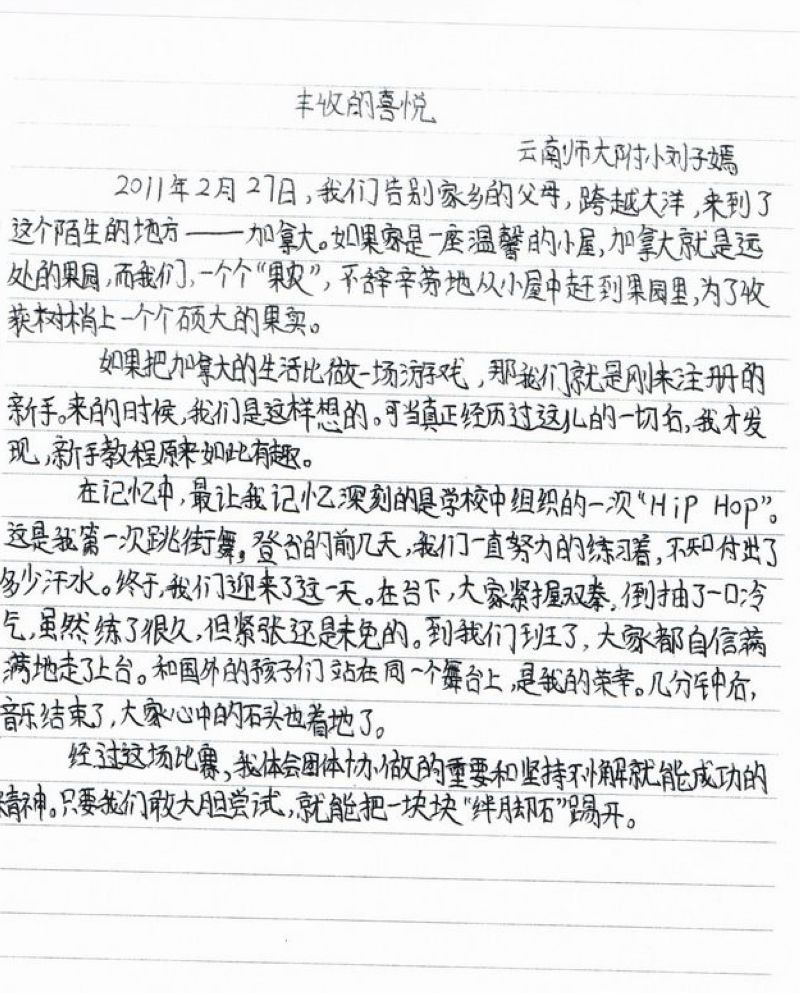 丰收的喜悦
云南师大附小刘子嫣
2011年2月27日，我们告别家乡的父母，跨越大洋，来到了
这个陌生的地方——加拿大。如果家是一座温馨的小屋，加拿大就是远
处的果园，而我们，一个个“果农”，不辞辛劳地从小屋中赶到果园里，为了收
获树梢上一个个硕大的果实。
如果把加拿大的生活比做一场游戏，那我们就是刚来注册的
新手。来的时候，我们是这样想的。可当真正经历过这儿的一切后，我才发
现，新手教程原来如此有趣。
在记忆中，最让我记忆深刻的是学校中组织的一次“HiP HoP”。
这是我第一次跳街舞。登台的前几天，我们一直努力的练习着，不知付出了
多少汗水。终于，我们迎来了这一天。在台下，大家紧握双拳，倒抽了一口冷
气，虽然练了很久，但紧张还是未免的。到我们班了，大家都自信满
满地走了上台。和国外的孩子们站在同一个舞台上，是我的荣幸。几分钟后，
音乐结束了，大家心中的石头也着地了。
经过这场比赛，我体会团体协做的重要和坚持不懈就能成功的
精神。只要我们敢大胆尝试，就能把一块块“绊脚石”踢开。